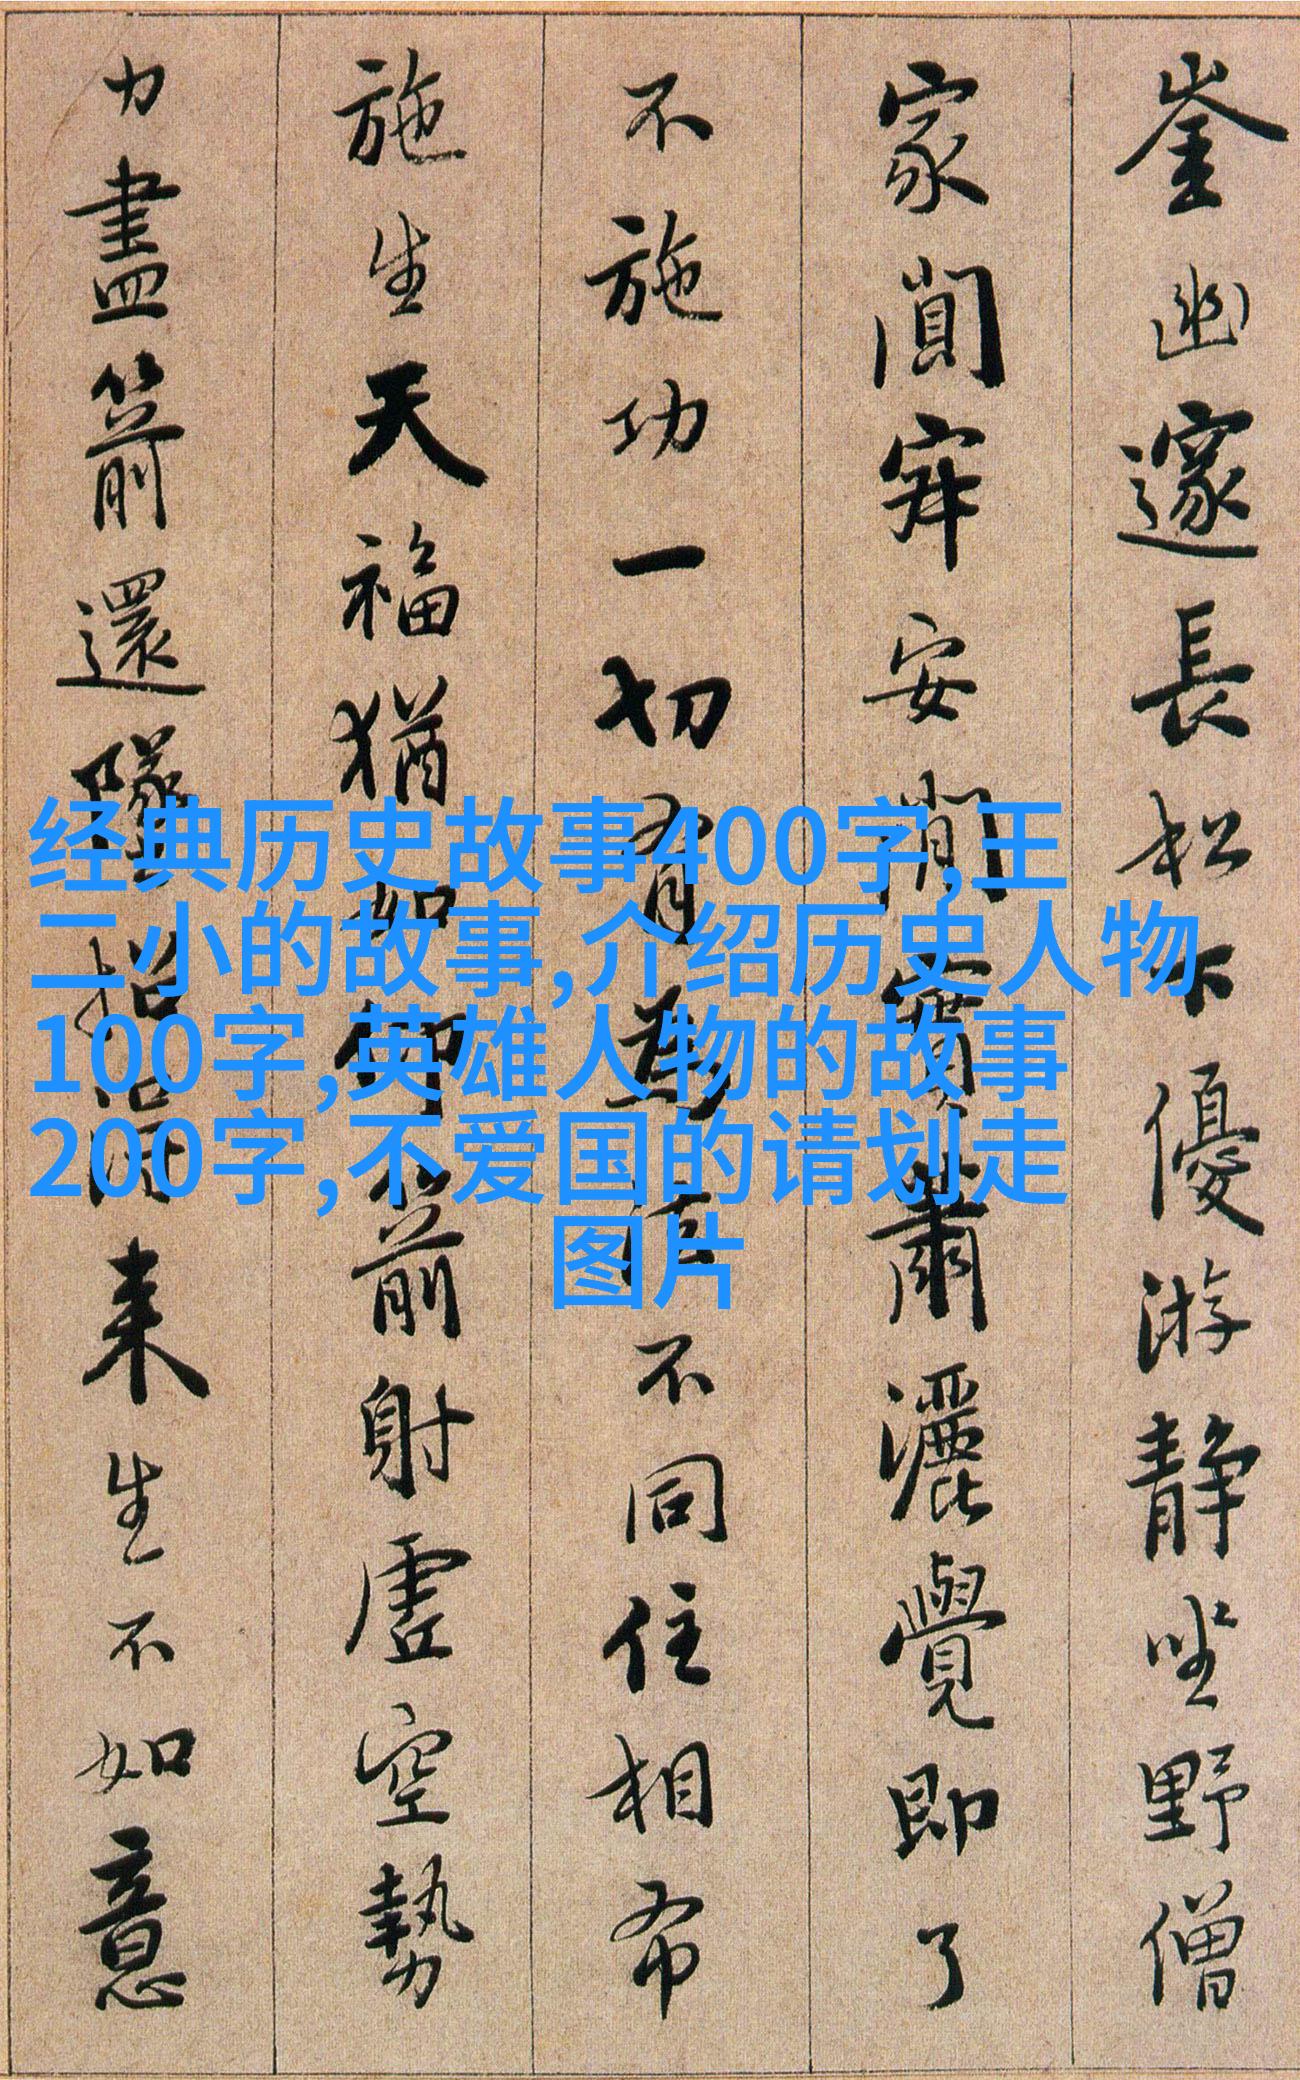 崟幽邃長松下優游静坐野僧
家闃寂安閑實蕭灑覺即了
不施功一切有為法不同住相布
施生天福猶如仰箭射虛空勢
力盡箭還墜招得来生不如意
经典历史故事400字,王
二小的故事,介绍历史人物
100字,英雄人物的故事
200字,不爱国的请划走
图片